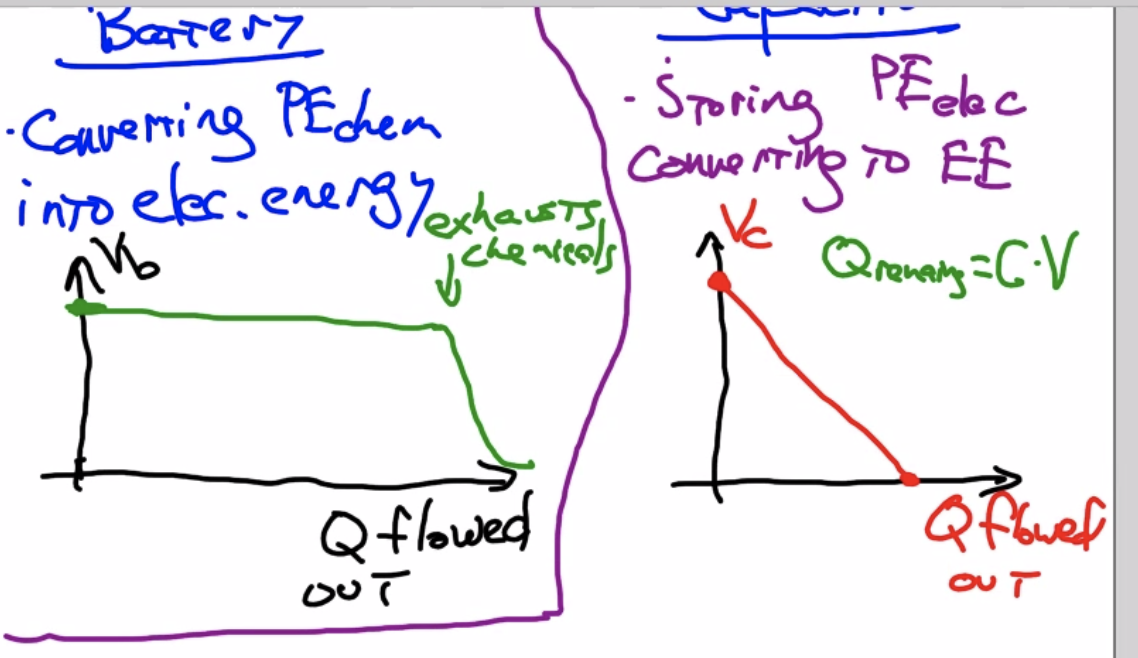 Battery
· Converting PEchem
into elec. energy
exhausts
chemicals
Vb
Q flowed
out
· Storing PEelec
Converting to EE
Vc
Qremaing = C·V
Q flowed
out